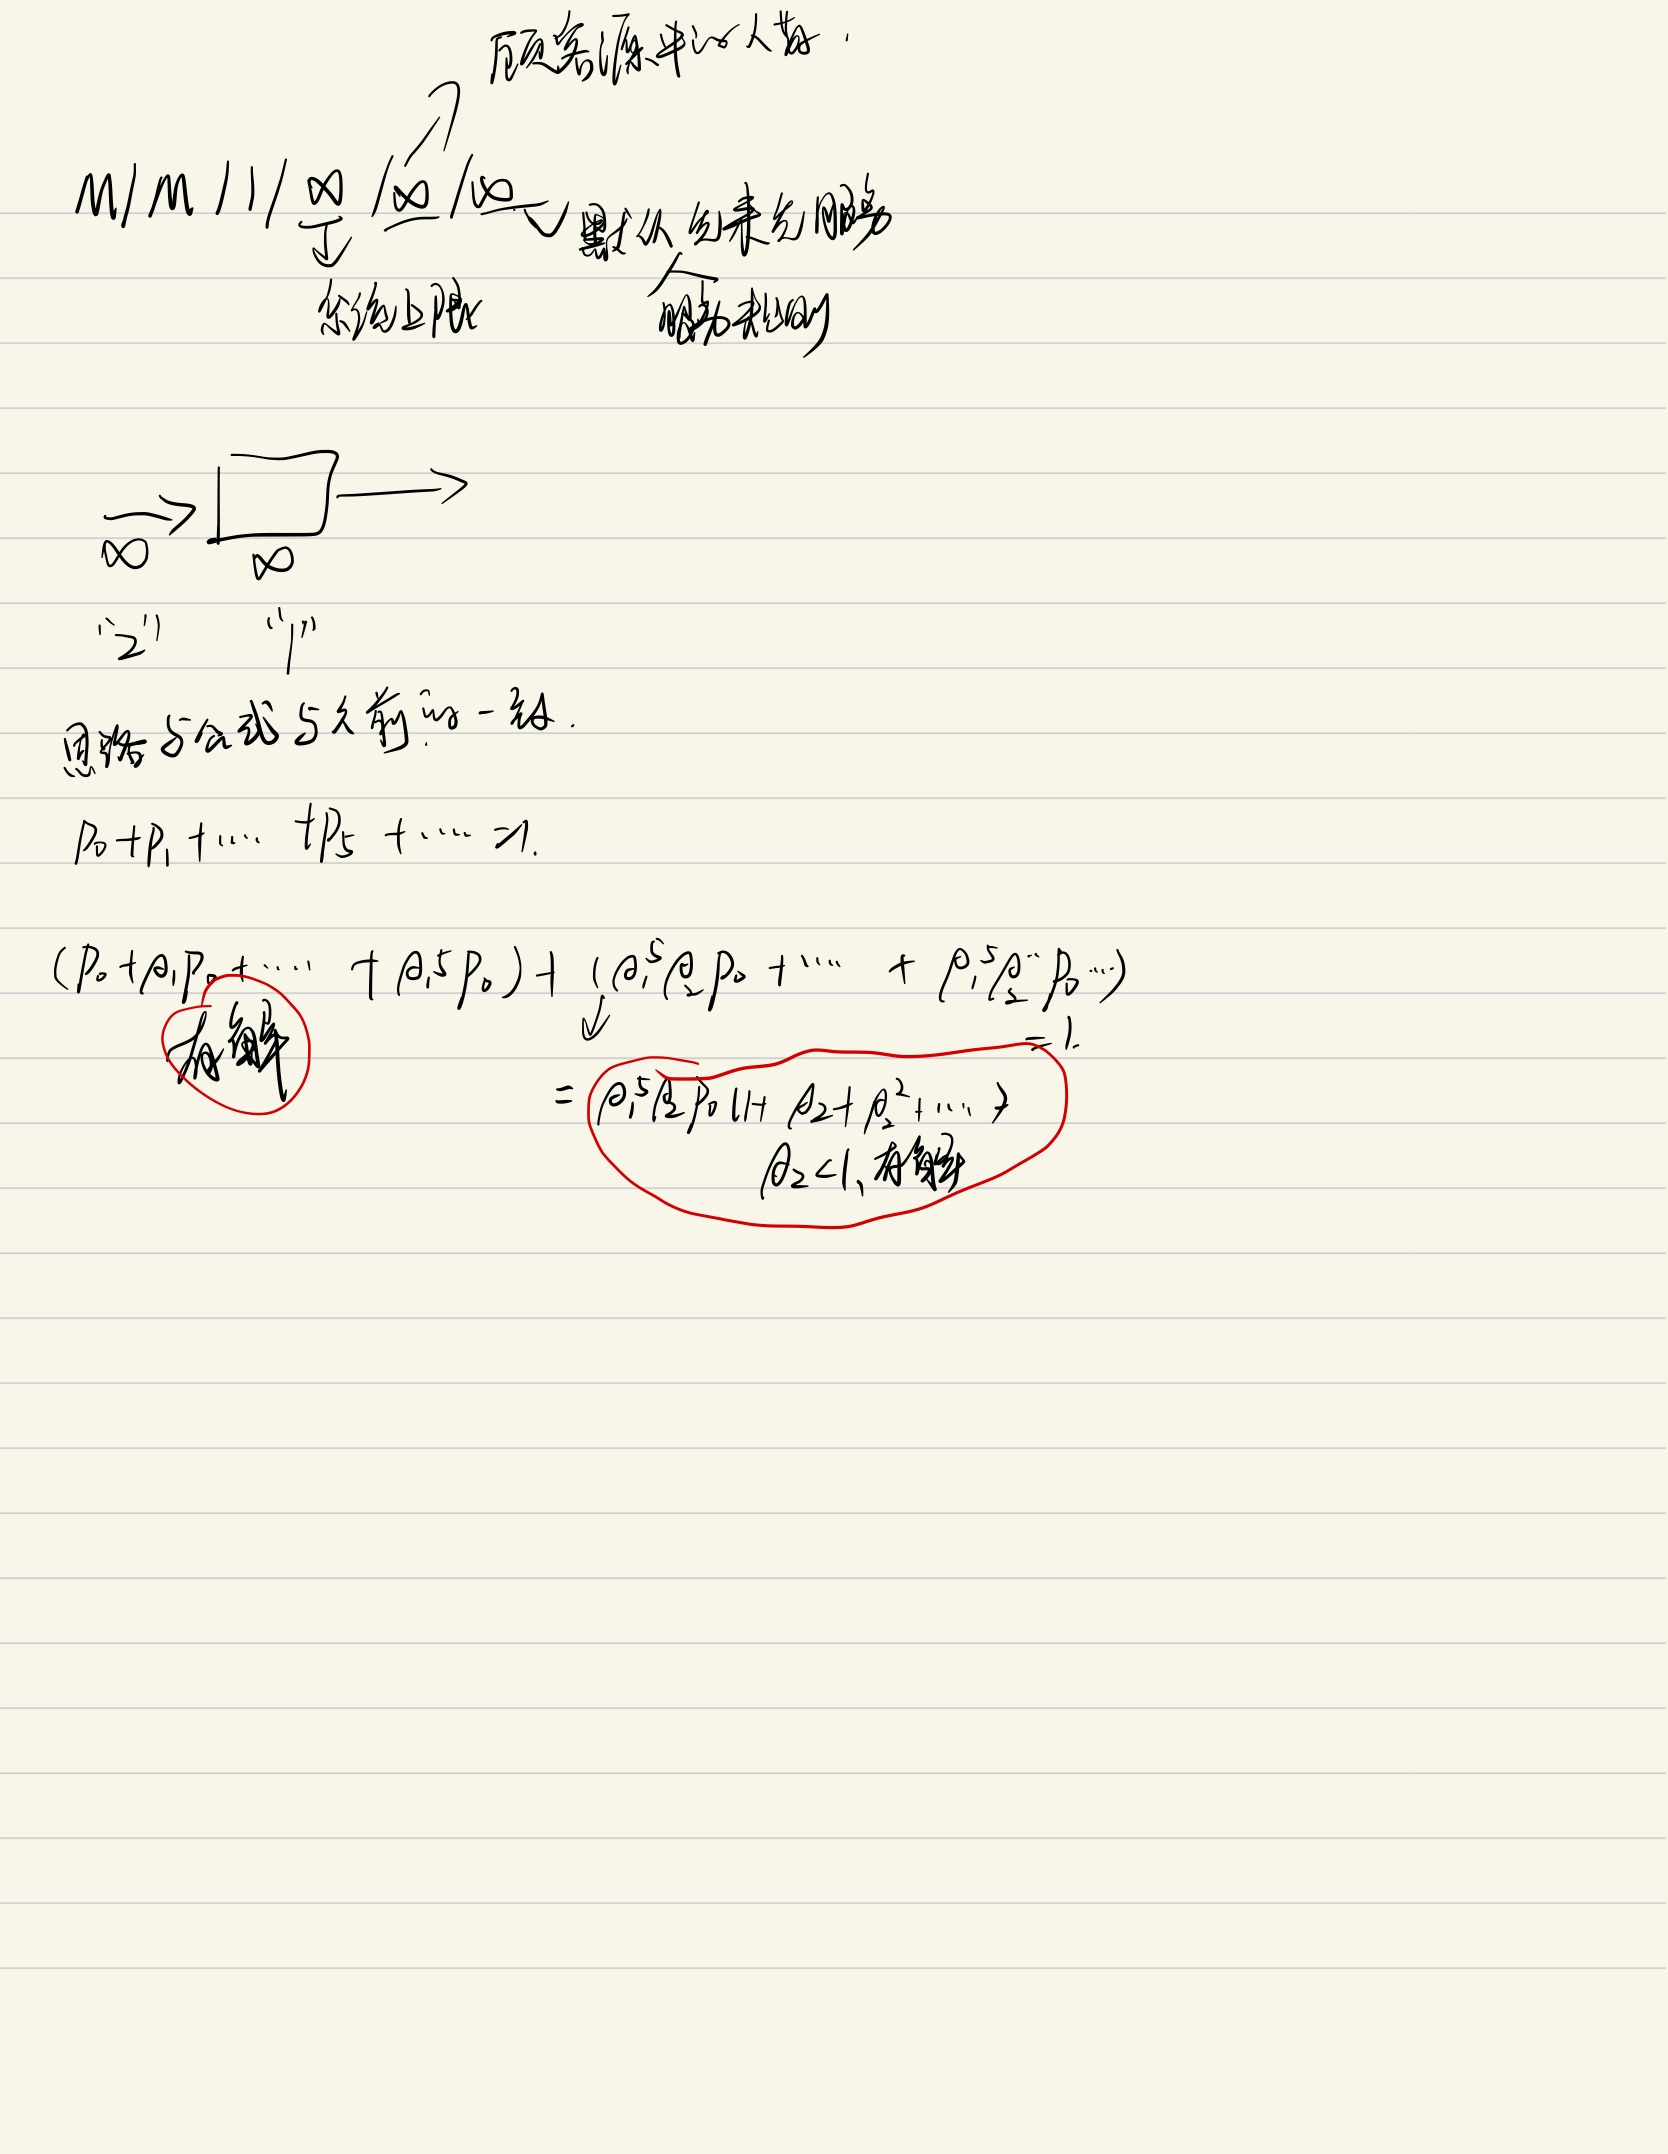 顾客源中的人数.
M/M/1/∞/∞/∞
默认先来先服务
系统上限
服务规则
∞ ∞
"2" "1"
思路与公式与之前的一致.
P₀+P₁+…… +P₅ +…… =1.
(P₀+ρ₁P₀+…… +ρ₁⁵P₀)+(ρ₁⁵ρ₂P₀+…… + ρ₁⁵ρ₂¨P₀…)
=1.
有解
=ρ₁⁵ρ₂P₀(1+ρ₂+ρ₂²+……)
ρ₂<1,有解